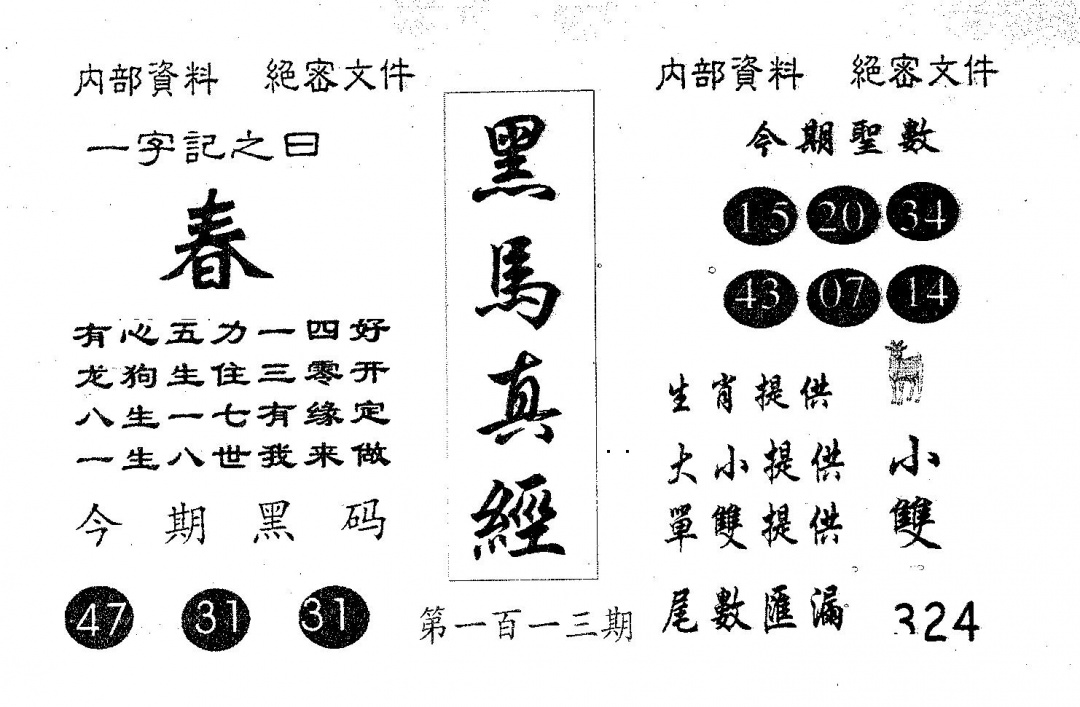 内部資料 絕密文件
一字記之曰
春
有心五力一四好
龙狗生住三零开
八生一七有缘定
一生八世我来做
今期黑码
47 31 31
黑馬真經
第一百一十三期
内部資料 絕密文件
今期聖數
15 20 34
43 07 14
生肖提供
大小提供 小
單雙提供 雙
尾數匯漏 324